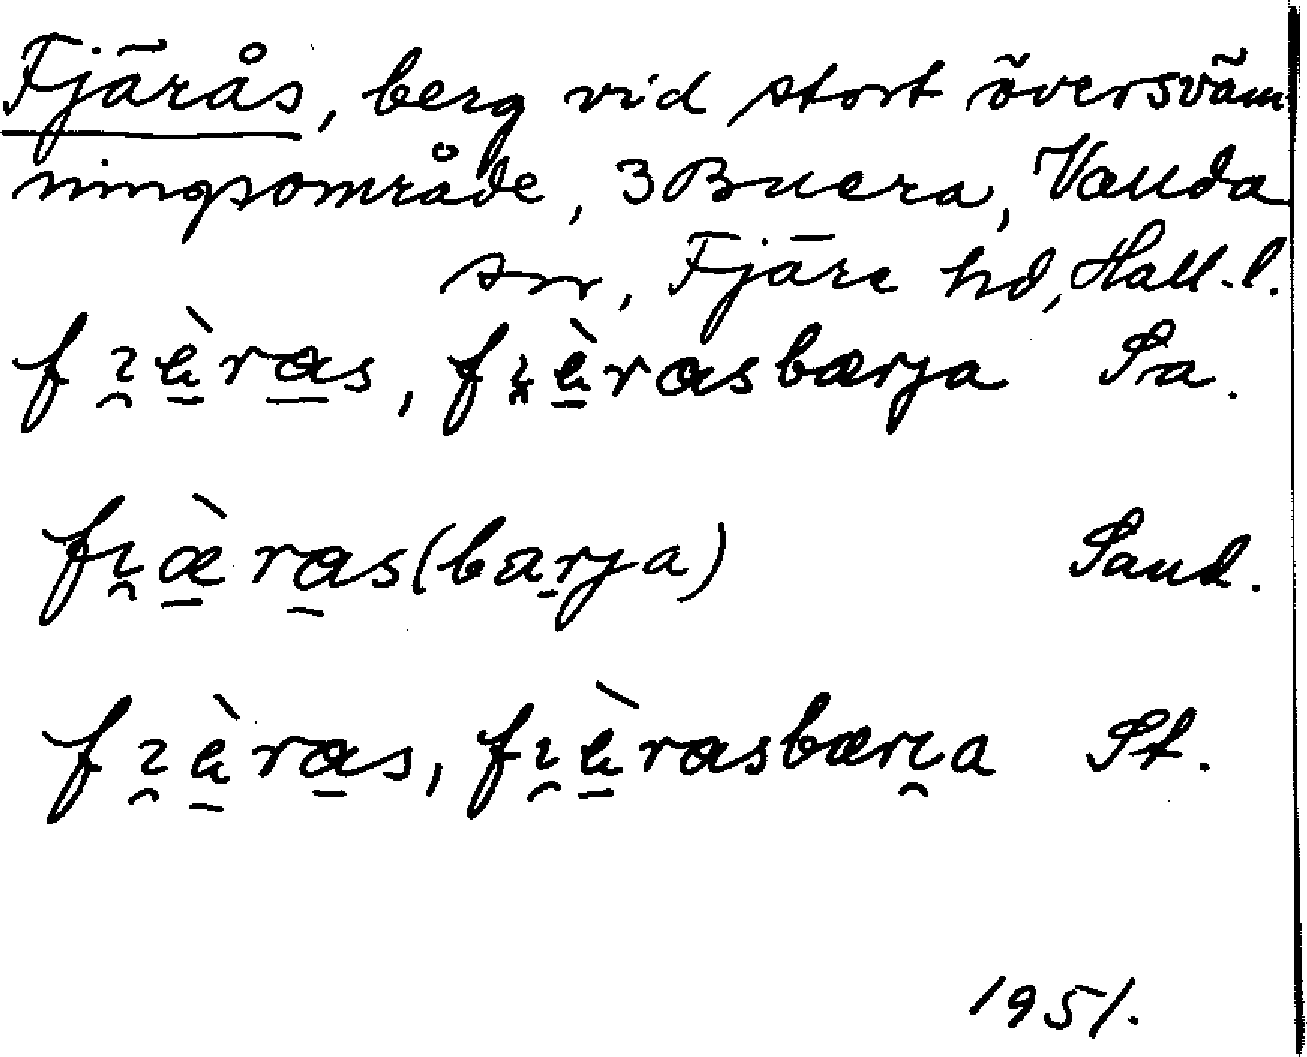 Fjärås, berg vid stort översväm
ningsområde, 3 Buera, Valida
sn, Fjäre hd, Hall.l.
fɪ̯æ̀ras, fɪ̯æ̀rasbærja Sa.
fɪ̯æ̀ras(barja) Sand.
fɪ̯æ̀ras, fɪ̯æ̀rasbærɪ̯a St.
1951.